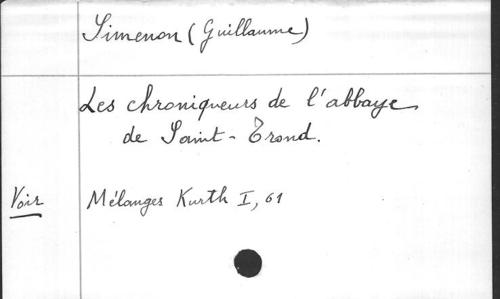 Simenon (Guillaume)
Les chroniqueurs de l'abbaye
de Saint-Trond.
Voir Mélanges Kurth I, 61